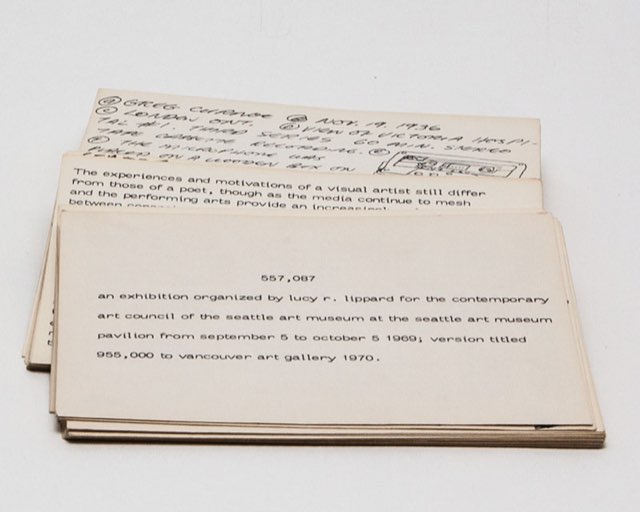 Ⓐ GREG CURNOE Ⓑ NOV. 19, 1936
Ⓒ LONDON ONT. VIEW OF VICTORIA HOSPI-
TAL #1. THIRD SERIES 60 MIN. STEREO
TAPE CASSETTE RECORDING.
THE MICROPHONE WAS
PLACED ON A WOODEN BOX ON
The experiences and motivations of a visual artist still differ
from those of a poet, though as the media continue to mesh
and the performing arts provide an increasingly
between
557,087
an exhibition organized by lucy r. lippard for the contemporary
art council of the seattle art museum at the seattle art museum
pavilion from september 5 to october 5 1969; version titled
955,000 to vancouver art gallery 1970.